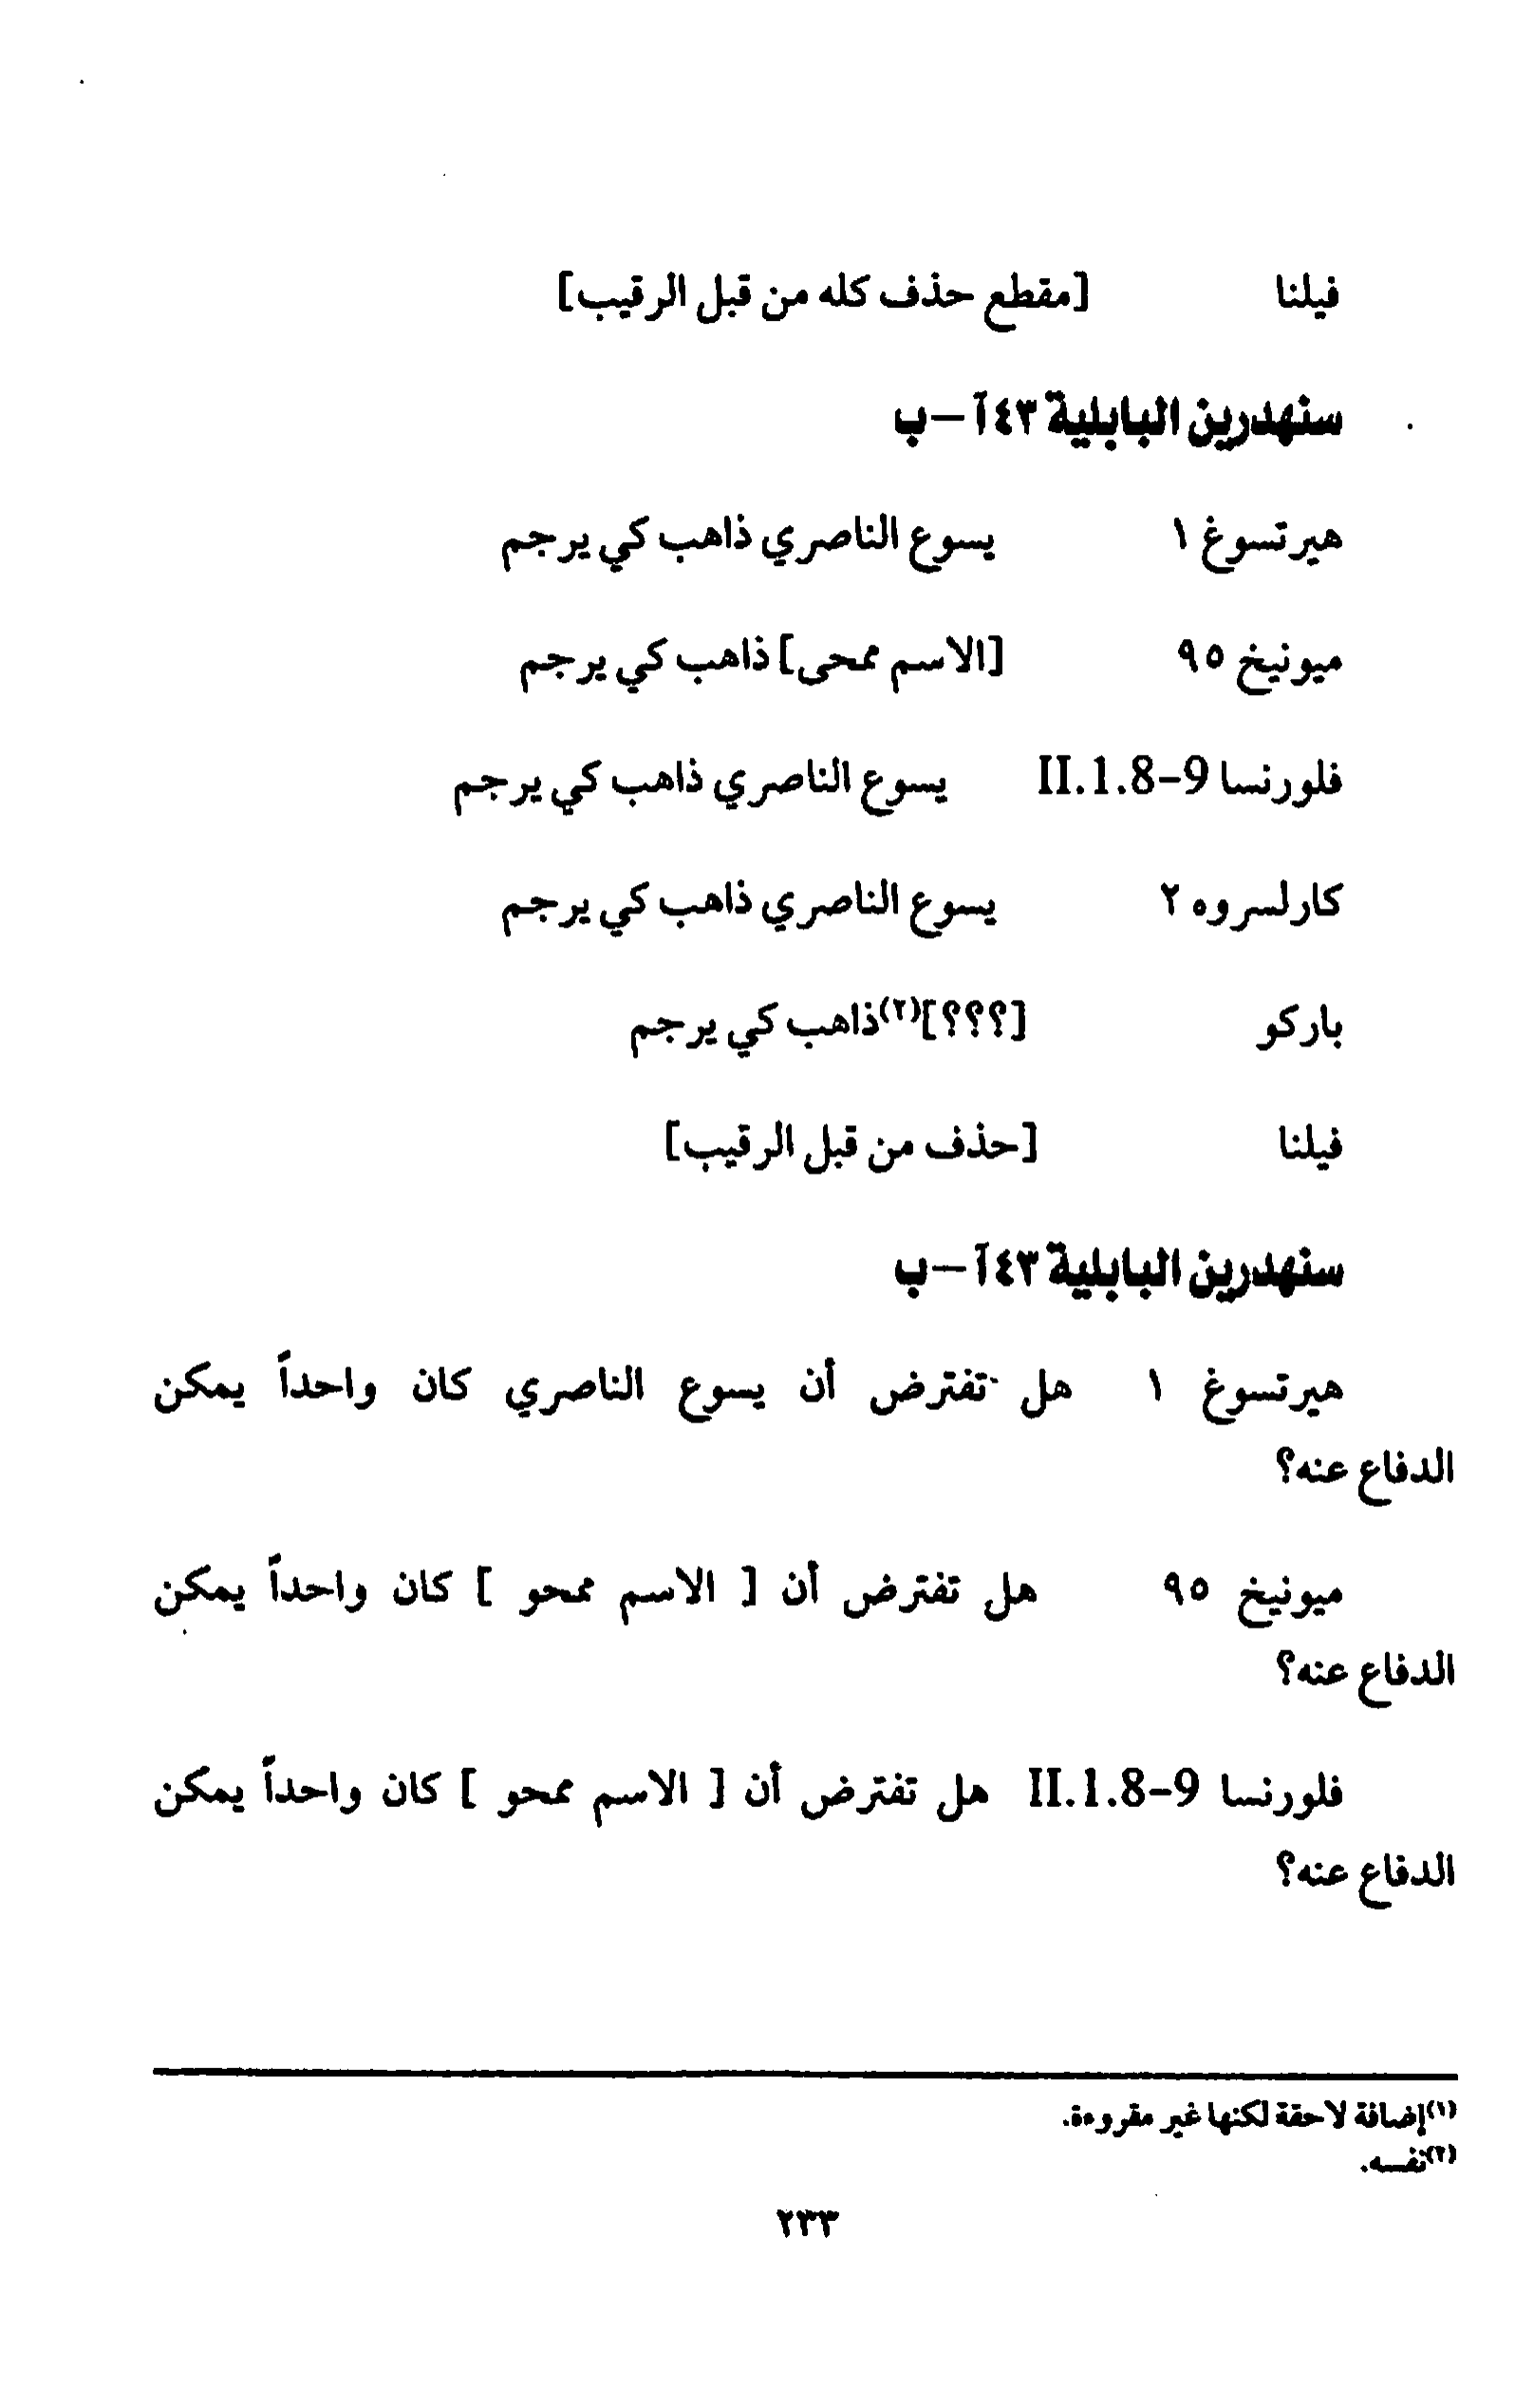 فيلنا [مقطع حذف كله من قبل الرقيب]
سنهدرين البابلية ٤٣آ-ب
هيرتسوغ ١ يسوع الناصري ذاهب كي يرجم
ميونيخ ٩٥ [الاسم ممحى] ذاهب كي يرجم
فلورنسا II.1.8-9 يسوع الناصري ذاهب كي يرجم
كارلسروه ٢ يسوع الناصري ذاهب كي يرجم
باركو [؟؟؟](٢)ذاهب كي يرجم
فيلنا [حذف من قبل الرقيب]
سنهدرين البابلية ٤٣آ-ب
هيرتسوغ ١ هل تفترض أن يسوع الناصري كان واحداً يمكن
الدفاع عنه؟
ميونيخ ٩٥ هل تفترض أن [ الاسم ممحو ] كان واحداً يمكن
الدفاع عنه؟
فلورنسا II.1.8-9 هل تفترض أن [ الاسم ممحو ] كان واحداً يمكن
الدفاع عنه؟
(١)إضافة لاحقة لكنها غير مقروءة.
(٢)نفسه.
٢٣٣